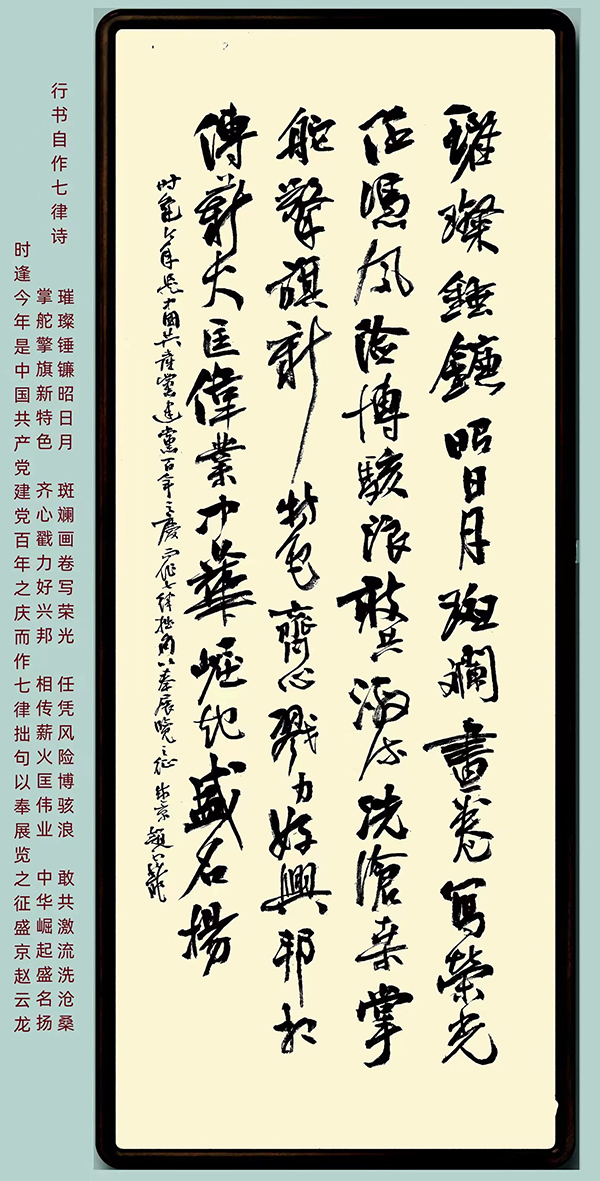 璀璨錘鐮昭日月斑斕畫卷寫榮光
任憑風险博駭浪敢共激流洗滄桑掌
舵擎旗新特色齊心戮力好興邦相
傳薪火匡偉業中華崛起盛名揚
时逢今年是中國共產黨建黨百年之慶而作七律拙句以奉展覽之征盛京趙云龍
行书自作七律诗
璀璨锤镰昭日月 斑斓画卷写荣光 任凭风险博骇浪 敢共激流洗沧桑
掌舵擎旗新特色 齐心戳力好兴邦 相传薪火匡伟业 中华崛起盛名扬
时逢今年是中国共产党建党百年之庆而作七律拙句以奉展览之征盛京赵云龙